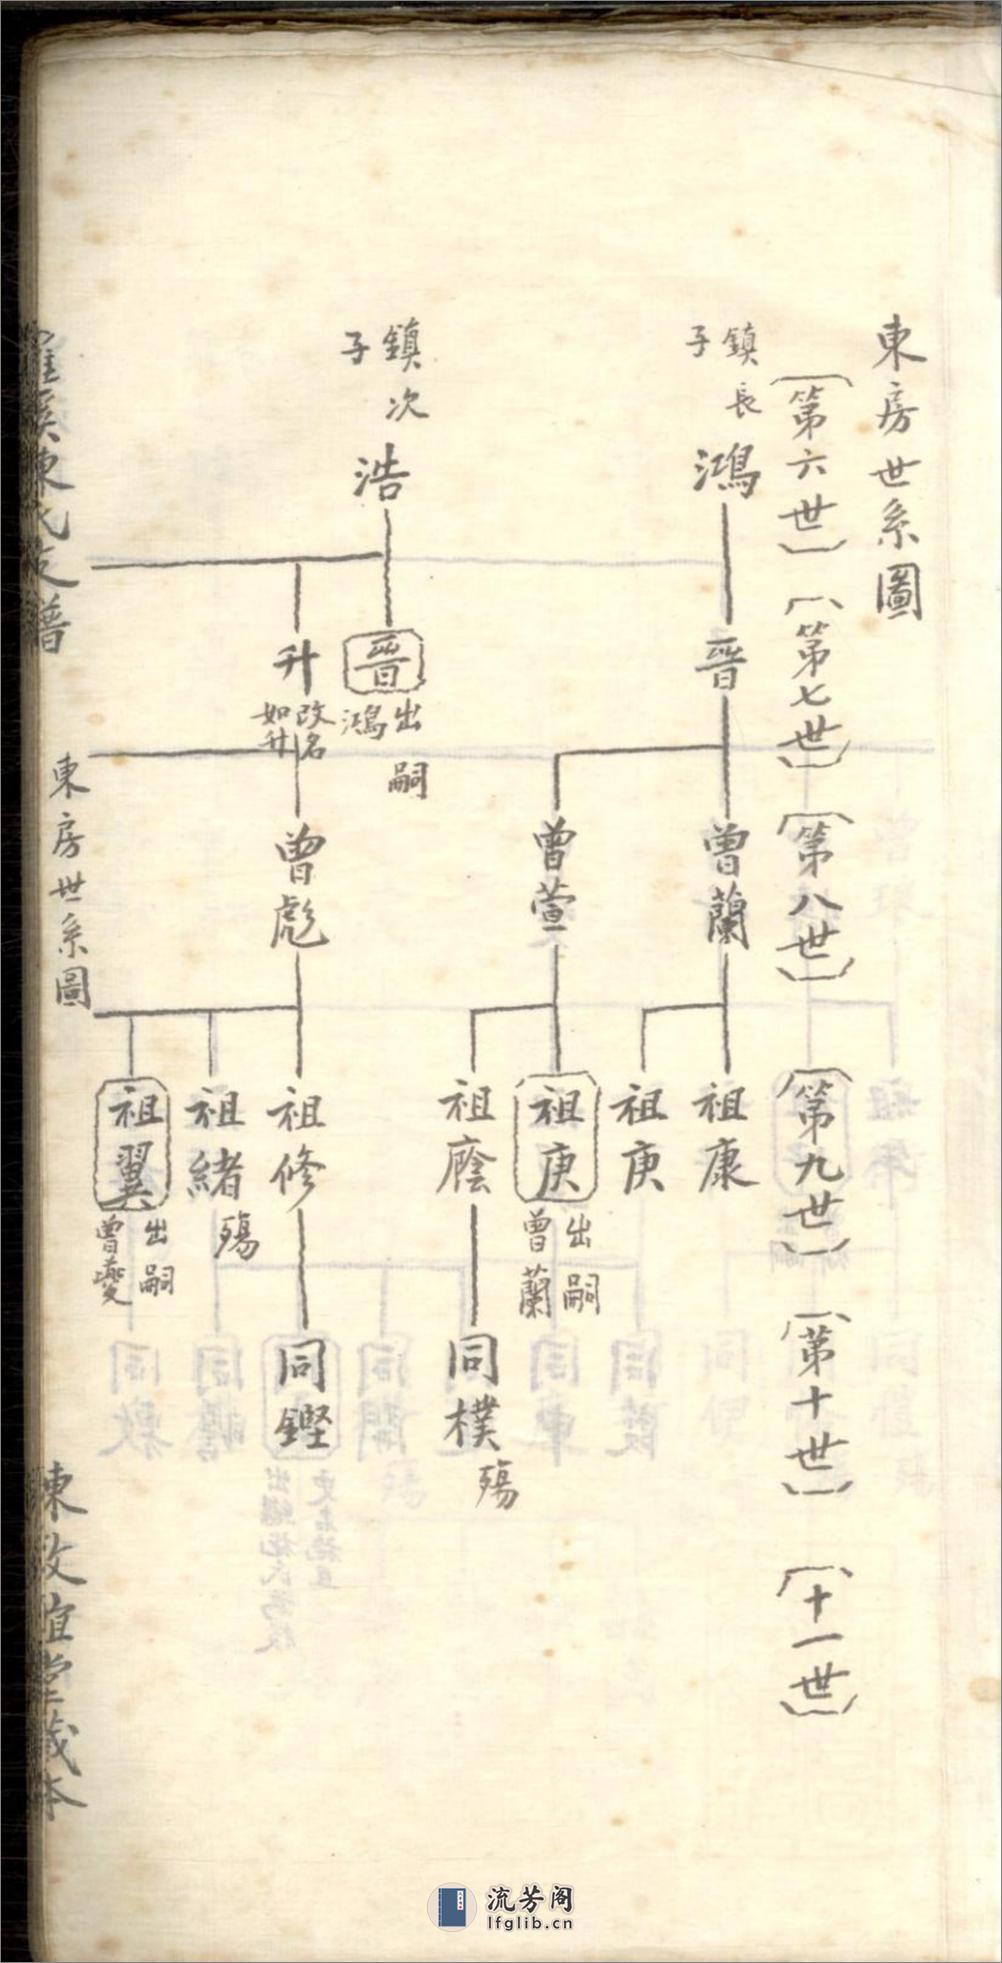 東房世系圖
〔第六世〕〔第七世〕〔第八世〕〔第九世〕〔第十世〕〔十一世〕
鎮長子
鴻
晉
曾蘭
祖康
祖庚
曾萱
祖庚
出嗣曾蘭
祖廕
同樸
殤
鎮次子
浩
晉
出嗣鴻
升
改名如升
曾彪
祖修
同鏗
祖緒
殤
祖翼
出嗣
東房世系圖
流芳阁
lfglib.cn